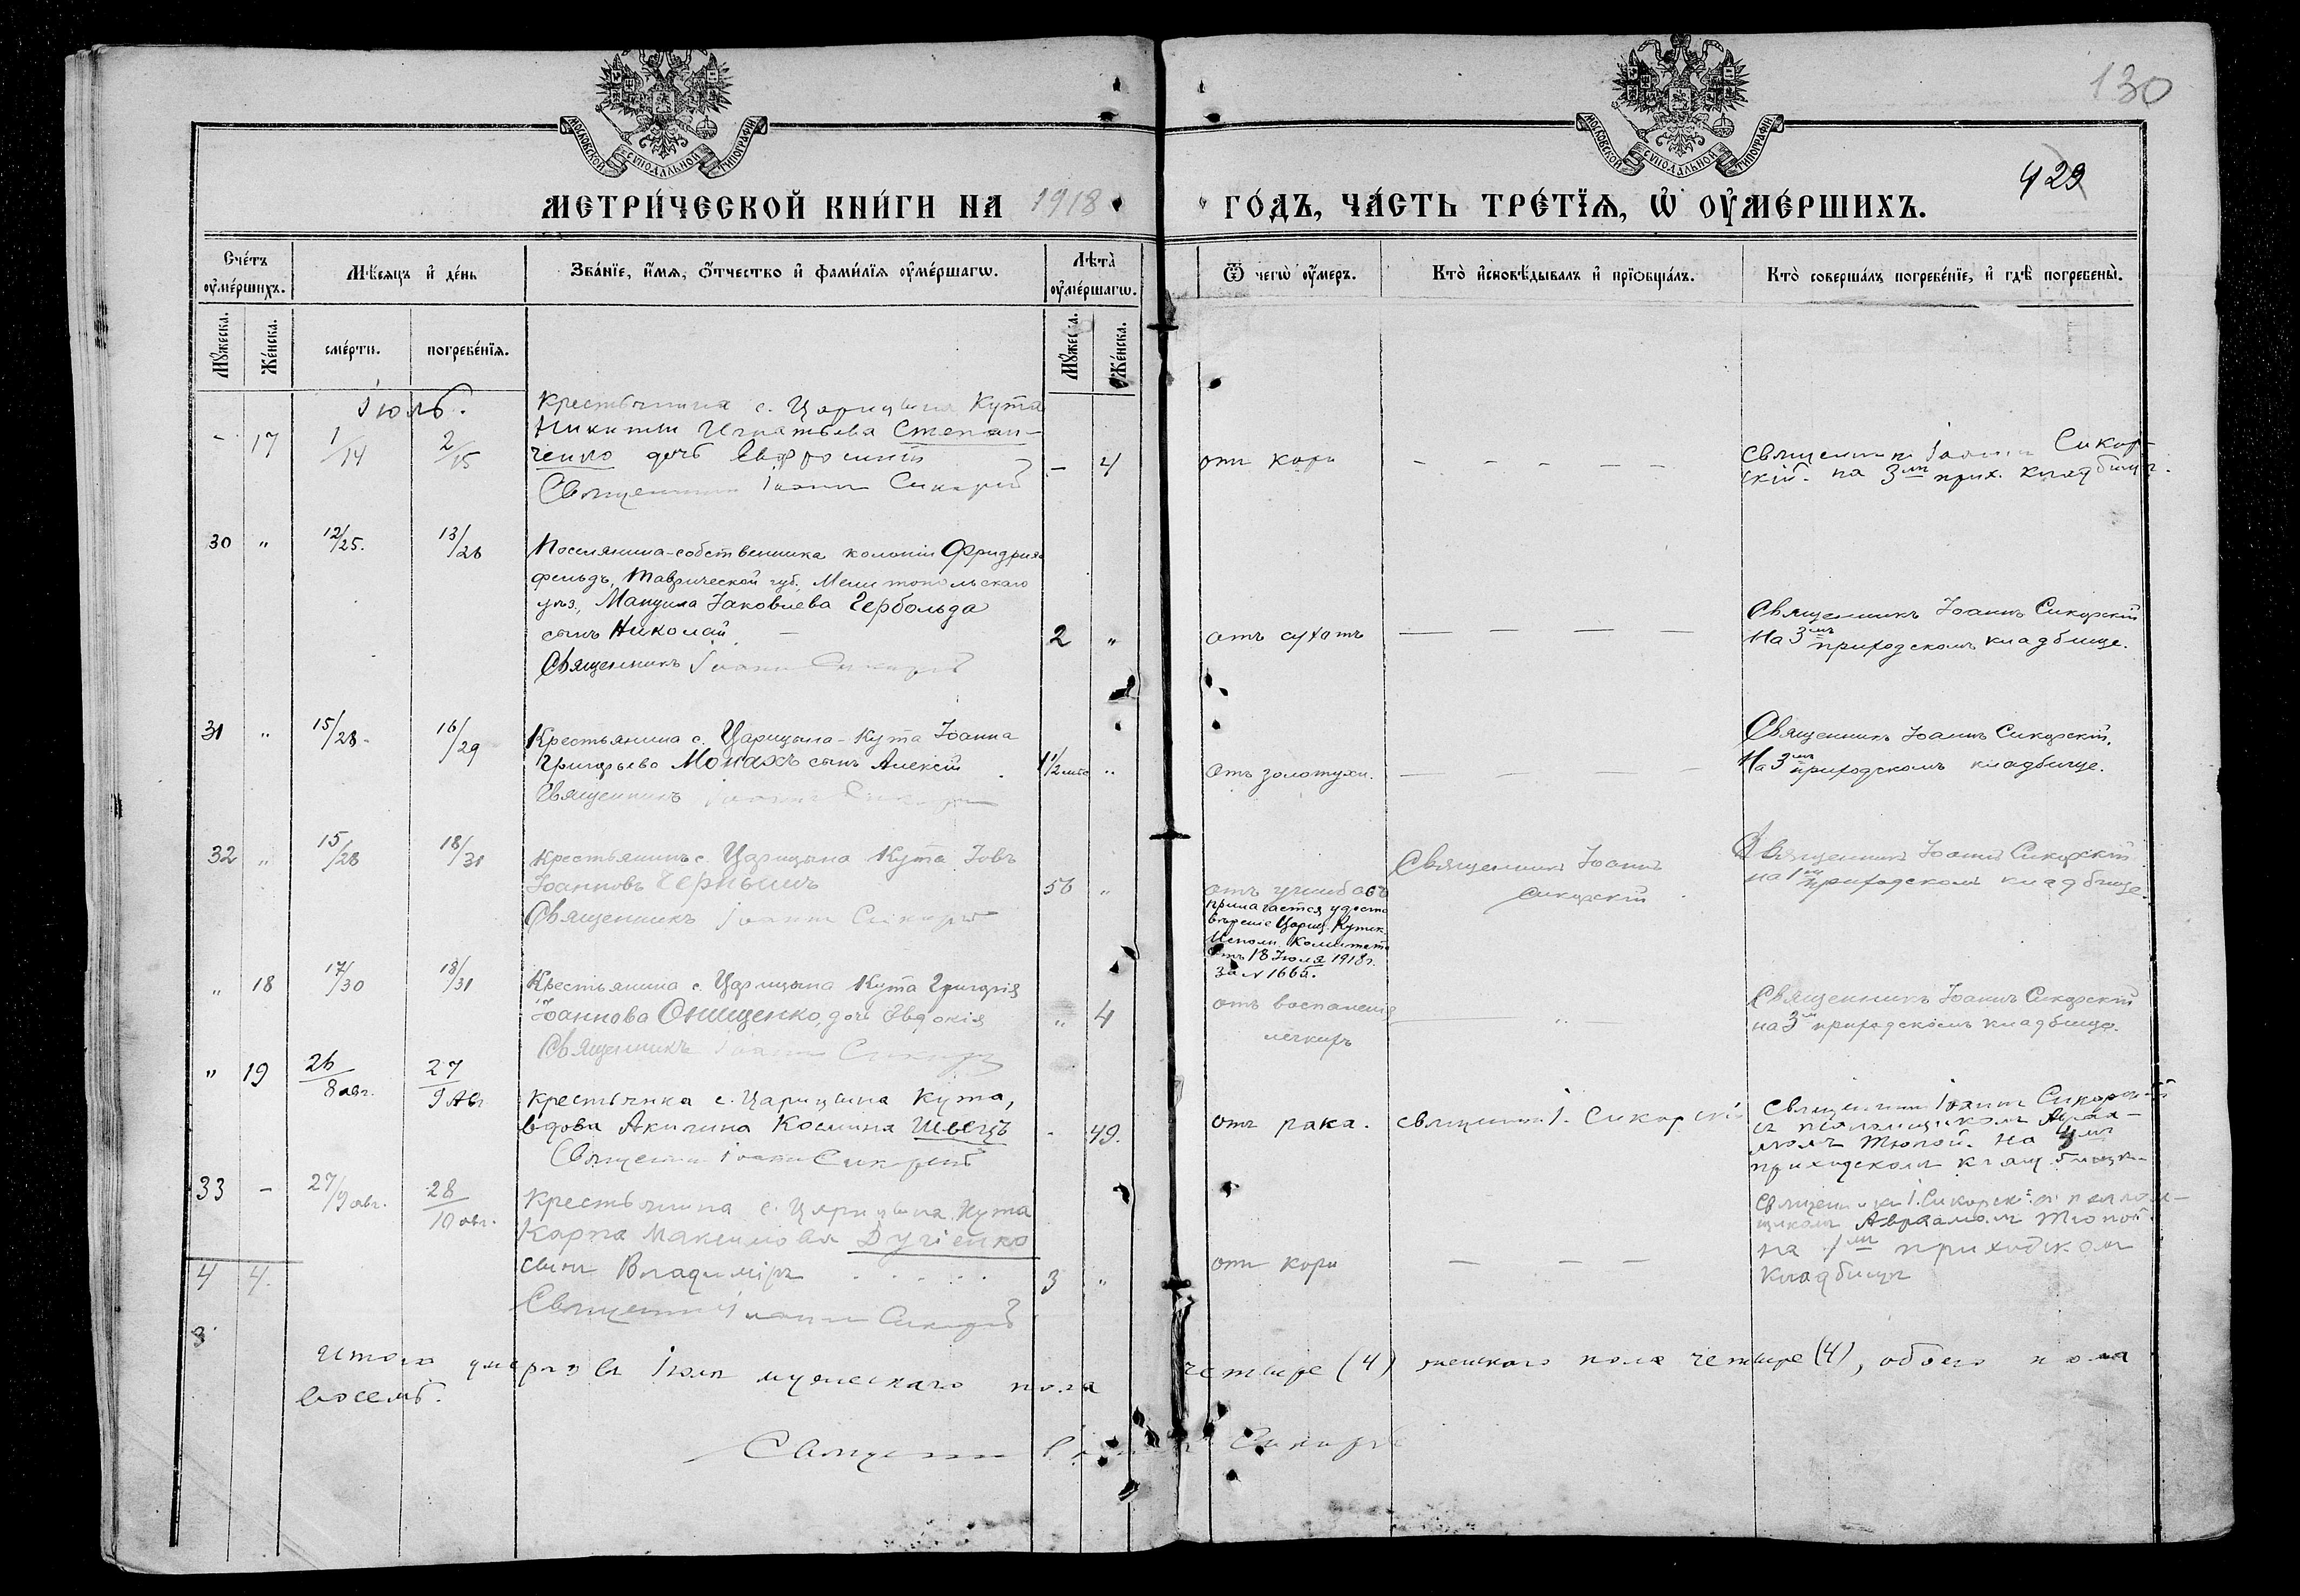 130
429
МОСКОВСКОЙ СѴНОДАЛЬНОЙ ТИПОГРАФІИ
МОСКОВСКОЙ СѴНОДАЛЬНОЙ ТИПОГРАФІИ
МЕТРИ́ЧЕСКОЙ КНИ́ГИ НА 1918
ГО́ДЪ, ЧА́СТЬ ТРЕ́ТІѦ, Ѡ҆ ОУ҆МЕ́РШИХЪ.
Сче́тъ оу҆ме́ршихъ.
Мѣ́сяцъ и҆ де́нь
Зва́нїе, и҆́мѧ, ѻ҆́тчество и҆ фами́лїѧ оу҆ме́ршагѡ.
Лѣ́та оу҆ме́ршагѡ.
Ѿ чегѡ̀ оу҆́меръ.
Кто̀ и҆сповѣ́дывалъ и҆ прїѻбща́лъ.
Кто̀ соверша́лъ погребе́нїе, и҆ гдѣ̀ погребены̀.
Мꙋ́жеска.
Же́нска.
сме́рти.
погребе́нїѧ.
Мꙋ́жеска.
Же́нска.
Іюль.
- 17 1/14 2/15
Крестьянина с. Царицына Кута
Никиты Игнатьева Степан-
ченко дочь Евфросинія - 4
Священникъ Іоаннъ Сикорскій
отъ кори - - - - -
Священникъ Іоаннъ Сикор-
скій. на 3мъ прих. кладбищѣ.
30 " 12/25. 13/26
Поселянина-собственника колоніи Фридрихс
фельдъ, Таврической губ., Мелитопольскаго
уѣз., Мануила Іаковлева Гербольда
сынъ Николай — 2 "
Священникъ Іоаннъ Сикорскій
отъ сухотъ — — — —
Священникъ Іоаннъ Сикорскій
На 3мъ приходскомъ кладбище.
31 " 15/28. 16/29
Крестьянина с. Царицына-Кута Іоанна
Григорьева Монахъ сынъ Алексій 1 1/2 "
Священникъ Іоаннъ Сикорскій
Отъ золотухи. — — — —
Священникъ Іоаннъ Сикорскій.
На 3мъ приходскомъ кладбище.
32 " 15/28 18/31
Крестьянинъ с. Царицына Кута Іовъ
Іоанновъ Чернышъ 56 "
Священникъ Іоаннъ Сикорскій
отъ ушибовъ
прилагается удосто
вѣреніе Цариц. Кутск.
Исполн. Комитета
отъ 18 Іюля 1918 г.
за № 1665.
Священникъ Іоаннъ
Сикорскій
Священникъ Іоаннъ Сикорскій
на 1м приходскомъ кладбище.
" 18 17/30 18/31
Крестьянина с. Царицына Кута Григорія
Іоаннова Онищенко, дочь Евдокія " 4
Священникъ Іоаннъ Сикорскій
отъ воспаленія
легкихъ
Священникъ Іоаннъ Сикорскій
на 3м приходскомъ кладбище.
" 19 26/8 авг. 27/9 Авг
Крестьянка с. Царицына Кута,
вдова Акилина Космина Швецъ - 49.
Священникъ Іоаннъ Сикорскій
отъ рака. священникъ І. Сикорскій
Священникъ Іоаннъ Сикорскій
съ псаломщикомъ Авраа-
момъ Тюпой. на
приходскомъ кладбищѣ
33 - 27/9 авг. 28/10 авг.
Крестьянина с. Царицына Кута
Карпа Максимова Дугіенко
сынъ Владиміръ . . . . . 3 "
Священникъ Іоаннъ Сикорскій
отъ кори — — —
Священникъ І. Сикорскій съ псалом-
щикомъ Авраамомъ Тюпой.
на 1мъ приходском
кладбищѣ
4 4.
Итого умерло въ Іюлѣ мужескаго пола четыре (4) женскаго пола четыре (4), обоего пола
восемь.
Священникъ Іоаннъ Сикорскій